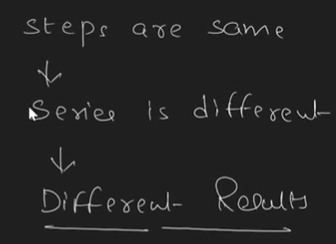 Steps are same
↓
Series is different
↓
Different Results